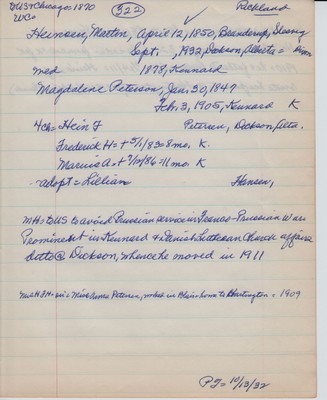 DUS+Chicago=1870 (322) Richland
WCo
Heinsen, Martin, April 12, 1850, Branderup, Slesvig
Sept. , 1932, Dickson, Alberta =
med 1878, Kennard
Magdaline Peterson, Jan. 30, 1847
Feb. 3, 1905, Kennard K
4ch= Hein F Petersen, Dickson, Alta.
Frederick H= + 5/1/83=8mo. K.
Marius A=+ 7/10/86=11 mo. K.
-adopt=Lillian Hansen,
MH=toUS to avoid Prussian service in Franco-Prussian War
Prominent in Kennard & Danish Lutheran Church affairs
ditto @ Dickson, whence he moved in 1911
Mrs HFH=sis Miss Anna Petersen, in Blair home to Huntington = 1909
PT=10/13/32